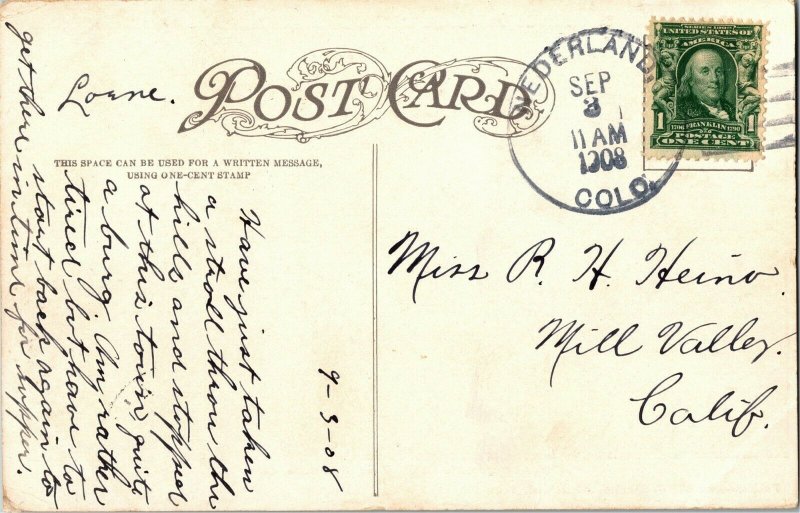 POST CARD
THIS SPACE CAN BE USED FOR A WRITTEN MESSAGE,
USING ONE-CENT STAMP
NEDERLAND
SEP
3
11 AM
1908
COLO.
SERIES 1902
UNITED STATES OF
AMERICA
1 1
1706 FRANKLIN 1790
POSTAGE
ONE CENT
Miss R. H. Heino.
Mill Valley.
Calif.
9-3-08
Have just taken
a stroll throu the
hills and stopped
at this town quite
a burg. Am rather
tired but have to
start back again to
get there in time for supper.
Lorne.